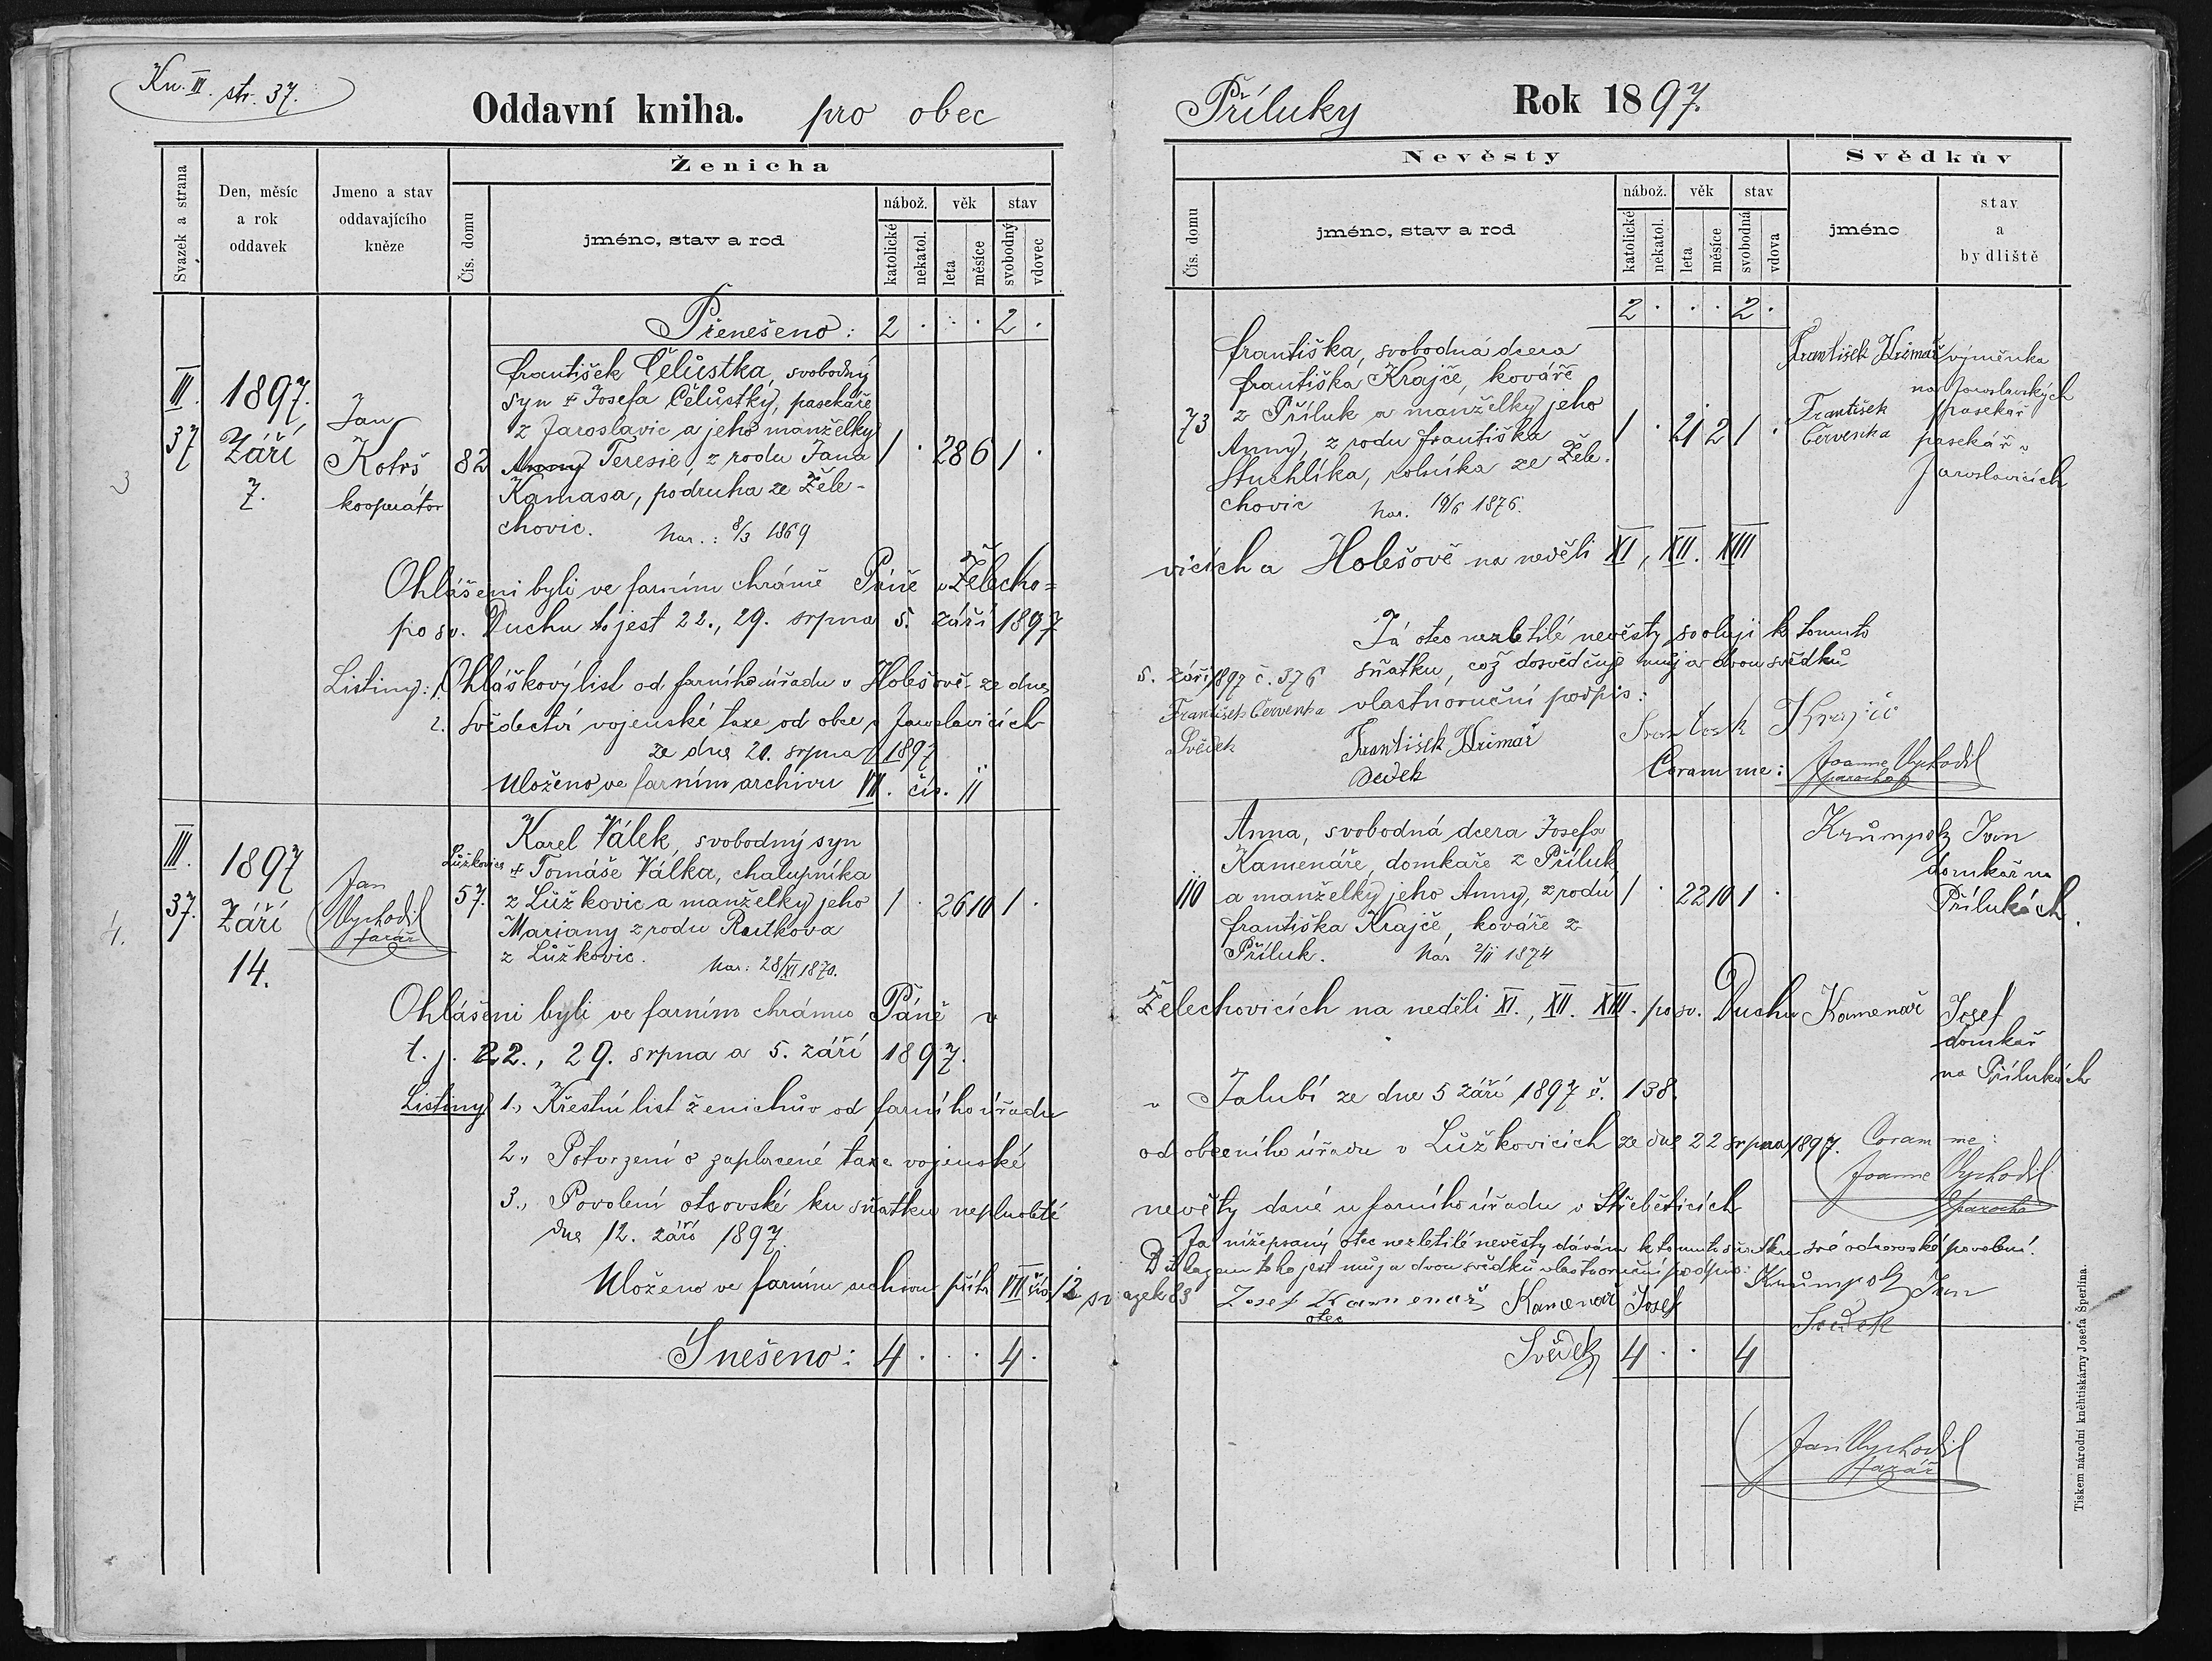 Kn. III. str. 37.
Oddavní kniha. pro obec
Svazek a strana
Den, měsíc
a rok
oddavek
Jmeno a stav
oddavajícího
kněze
Ženicha
Čís. domu
jméno, stav a rod
nábož. věk stav
katolické nekatol. leta měsíce svobodný vdovec
Přenešeno: 2 . . . 2 .
III.
37
3
1897.
Září
7.
Jan
Kotrš
kooperátor
82
František Čelůstka, svobodný
syn † Josefa Čelůstky, pasekáře
z Jaroslavic a jeho manželky
Anny Teresie, z rodu Jana
Kamasa, podruha ze Žele-
chovic. Nar.: 8/3 1869
1 . 28 6 1 .
Ohlášeni byli ve farním chrámě Páně v Želecho=
po sv. Duchu to jest 22., 29. srpna 5. září 1897
Listiny: 1. Ohláškový list od farního úřadu v Holešově ze dne
2. svědectví vojenské taxe od obce v Jaroslavicích
ze dne 20. srpna 1897
Uloženo ve farním archivu VII. čís. 11
III.
37.
4.
1897
Září
14.
Jan
Vychodil
farář
Lůžkovice
57.
Karel Válek, svobodný syn
† Tomáše Válka, chalupníka
z Lůžkovic a manželky jeho
Mariany z rodu Rutkova
z Lůžkovic.
Nar: 28/XI 1870.
1 . 26 10 1 .
Ohlášeni byli ve farním chrámu Páně v
t. j. 22., 29. srpna a 5. září 1897.
Listiny 1., Křestní list ženichův od farního úřadu
2., Potvrzení o zaplacené taxe vojenské
3., Povolení otcovské ku sňatku neplnoleté
dne 12. září 1897.
Uloženo ve farním archivu příh. VII čís 12 svazek 83
Snešeno: 4 . . . 4 .
Příluky Rok 1897.
Nevěsty
Svědkův
Čís. domu
jméno, stav a rod
nábož. věk stav
katolické nekatol. leta měsíce svobodná vdova
jméno
stav
a
bydliště
2 . . . 2 .
73
Františka, svobodná dcera
Františka Krajče, kováře
z Příluk a manželky jeho
Anny, z rodu Františka
Stuchlíka, rolníka ze Žele-
chovic Nar. 19/6 1876.
1 . 21 2 1 .
František Hřimař výměnka
na Jaroslavských
pasekář
František
Červenka
pasekář v
Jaroslavicích
vicích a Holešově na neděli XI, XII. XIII
Já otec nezletilé nevěsty svoluji k tomuto
sňatku, což dosvědčuje můj a dvou svědků
vlastnoruční podpis:
5. září 1897 č. 376
František Červenka
Svědek
František Hřimař
svědek
Krajčč
Coram me: Joanne Vychodil
parocho
110
Anna, svobodná dcera Josefa
Kamenáře, domkaře z Příluk
a manželky jeho Anny, z rodu
Františka Krajče, kováře z
Příluk. Nár 2/11 1874
1 . 22 10 1 .
Krůmpolz Jan
domkař na
Přílukách.
Želechovicích na neděli XI., XII. XIII. po sv. Duchu
Kamenař Josef
domkař
na Přílukách
v Jalubí ze dne 5 září 1897 č. 138.
od obecního úřadu v Lůžkovicích ze dne 22 srpna 1897.
Coram me:
Joanne Vychodil
parocho
nevěsty dané u farního úřadu v Štřebětičích
Já nížepsaný otec nezletilé nevěsty dávám k tomuto sňatku své otcovské povolení.
Důkazem toho jest můj a dvou svědků vlastnoruční podpis:
Josef Kamenař
otec
Kamenař Josef
Svědek
Krůmpolz Jan
Svědek
4 . . 4
Jan Vychodil
farář
Tiskem národní kněhtiskárny Josefa Šperlína.